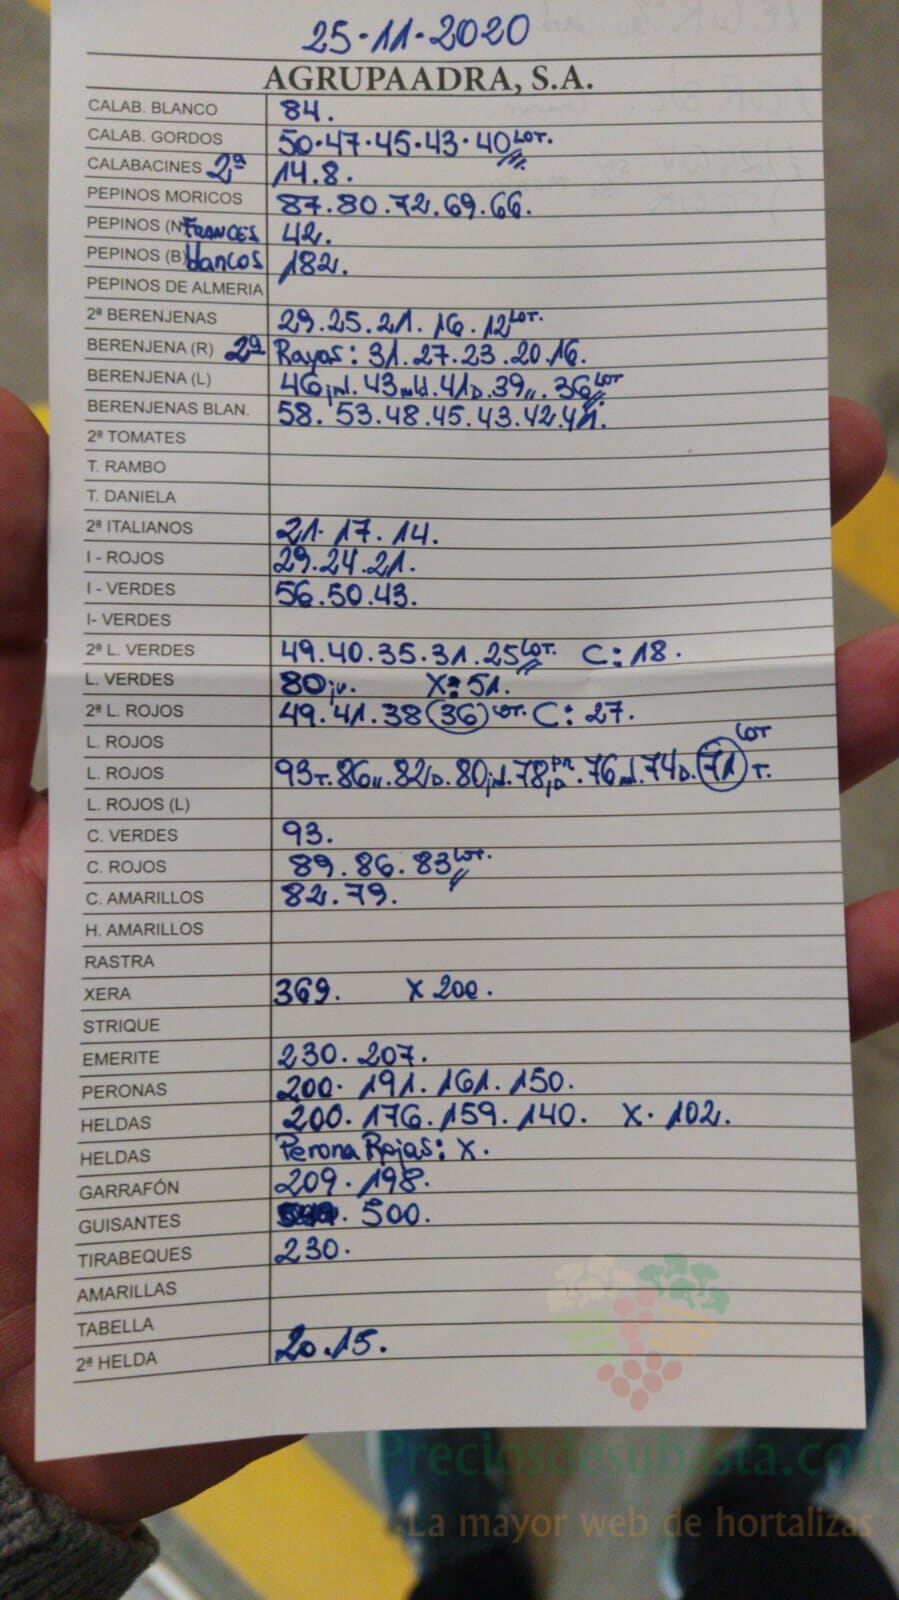 25-11-2020
AGRUPAADRA, S.A.
CALAB. BLANCO 84.
CALAB. GORDOS 50.47.45.43.40 LOT.
CALABACINES 2ª 14.8.
PEPINOS MORICOS 87.80.72.69.66.
PEPINOS (N FRANCES 42.
PEPINOS (B) blancos 182.
PEPINOS DE ALMERIA
2ª BERENJENAS 29.25.21.16.12 LOT.
BERENJENA (R) 2ª Rayas: 31.27.23.20.16.
BERENJENA (L) 46 jnl. 43 mld. 41 D. 39 ,, . 36 LOT
BERENJENAS BLAN. 58. 53.48.45.43.42.41.
2ª TOMATES
T. RAMBO
T. DANIELA
2ª ITALIANOS 21. 17. 14.
I - ROJOS 29.24.21.
I - VERDES 56.50.43.
I- VERDES
2ª L. VERDES 49.40.35.31.25 LOT. C: 18.
L. VERDES 80 jv. X: 51.
2ª L. ROJOS 49.41.38 (36) LOT. C: 27.
L. ROJOS
L. ROJOS 93 T. 86 ,, . 82 D. 80 jnl. 78 . 76 ml. 74 D. (71) T. LOT
L. ROJOS (L)
C. VERDES 93.
C. ROJOS 89.86.83 LOT.
C. AMARILLOS 82.79.
H. AMARILLOS
RASTRA
XERA 369. X 200.
STRIQUE
EMERITE 230. 207.
PERONAS 200. 191. 161. 150.
HELDAS 200. 176. 159. 140. X. 102.
HELDAS Perona Rojas: X.
GARRAFÓN 209. 198.
GUISANTES 500.
TIRABEQUES 230.
AMARILLAS
TABELLA
2ª HELDA 20.15.
Preciosdesubasta.com
La mayor web de hortalizas